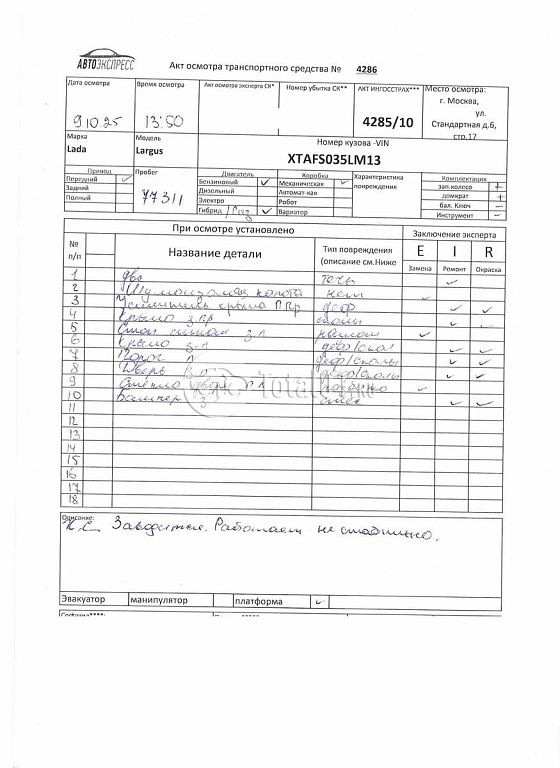 АВТОЭКСПРЕСС
Акт осмотра транспортного средства № 4286
Дата осмотра Время осмотра Акт осмотра эксперта СК* Номер убытка СК** АКТ ИНГОССТРАХ*** Место осмотра:
г. Москва,
ул.
Стандартная д.6,
стр.17
9 10.25 13:50 4285/10
Марка Модель Номер кузова -VIN
Lada Largus XTAFS035LM13
Привод Пробег Двигатель Коробка Характеристика повреждения Комплектация
Передний Бензиновый Механическая зап.колесо +
Задний Дизельный Автомат-кая домкрат +
Полный 77311 Электро Робот бал. Ключ –
Гибрид /Газ Вариатор Инструмент –
При осмотре установлено Заключение эксперта
№ п/п Название детали Тип повреждения (описание см.Ниже E I R
Замена Ремонт Окраска
1 двс течь
2 капота нет
3 Усилитель крыла П Пр деф
4 Крыло З Пр сколы
5 Стоп сигнал З Л
6 Крыло З Л деф/скол
7 Порог Л деф/сколы
8 Дверь З Л деф/сколы
9 Стекло двери П Л разбито
10 Бампер З
11
12
13
14
15
16
17
18
Total
Описание:
Заводится. Работает не стабильно.
Эвакуатор манипулятор платформа